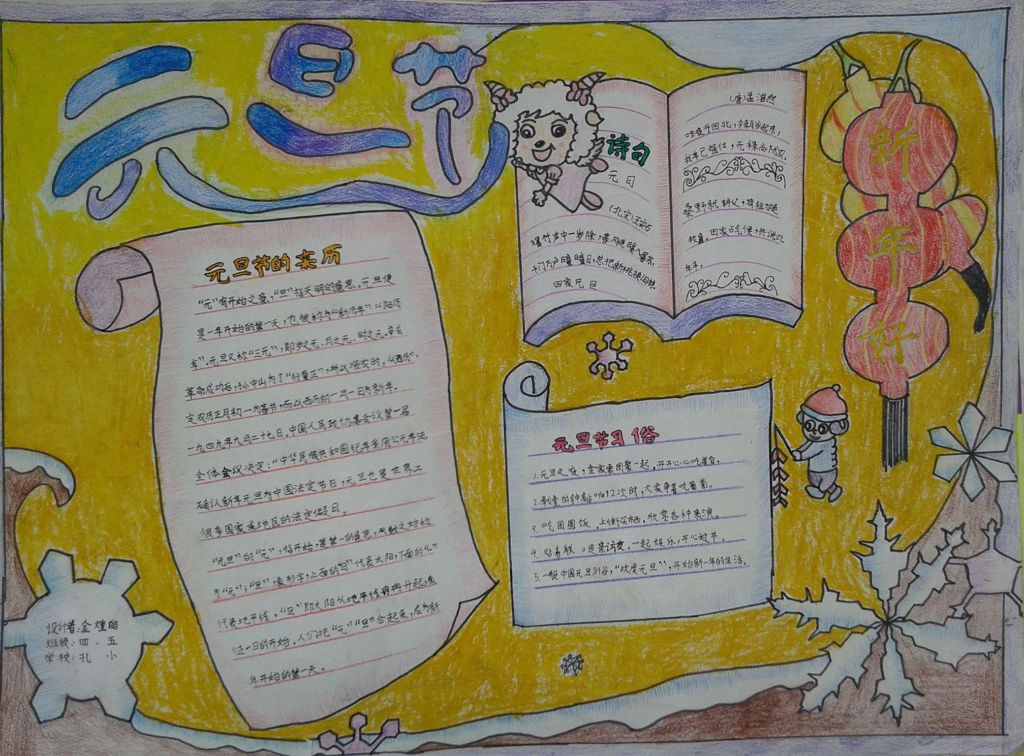 元旦节
元旦节的来历
"元"有开始之意,"旦"指天明的意思。元旦便
是一年开始的第一天,也被称为"新历年""阳历
年"。元旦又称"三元",即岁之元、月之元、时之元。辛亥
革命成功后,孙中山为了"行夏正",所以顺农时,"从西历",
定农历正月初一为春节,而以西历的一月一日为新年。
一九四九年九月二十七日,中国人民政协会议第一届
全体会议决定:"中华民族共和国纪年采用公元年法
确认新年元旦为中国法定节日,元旦也是世界上
很多国家或地区的法定假日。
"元旦"的"元",指开始,是第一的意思,凡数之始称
为"元";"旦"像形字,上面的"日"代表太阳,下面的"一"
代表地平线。"旦"即太阳从地平线冉冉升起,象
征一日的开始。人们把"元""旦"合起来,成为新
年开始的第一天。
诗句
元日
(北宋)王安石
爆竹声中一岁除,春风送暖入屠苏。
千门万户曈曈日,总把新桃换旧符。
田家元日
(唐)孟浩然
昨夜斗回北,今朝岁起东,
我年已强仕,无禄尚忧农。
桑野就耕父,荷锄随
牧童。田家占气候,共说此
年丰。
新年好
元旦节习俗
1.元旦之夜,全家要团聚一起,开开心心吃着宴。
2.新年的钟敲响12次时,大家争着吃葡萄。
3.吃团圆饭、上街买栖、欣赏各种表演。
4.贴春联、走亲访友、一起娱乐,开心过节。
5.一般中国元旦习俗,"欢度元旦",开始新一年的生活。
设计者:金煌皓
班级:四.五
学校:孔小